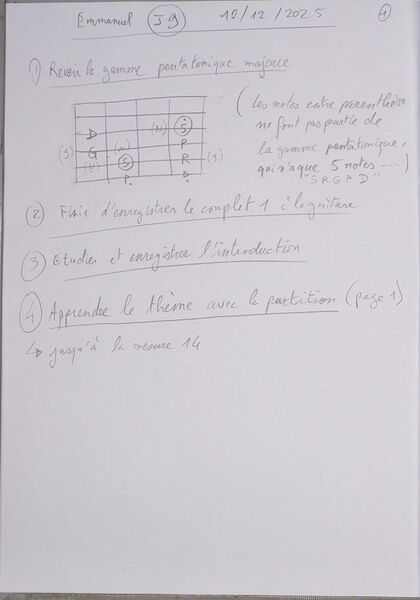 Emmanuel J9 10/12/2025 1
① Revoir la gamme pentatonique majeure
(N) S
D
(M) P
(J) G
(N) S R (J)
P D
(Les notes entre parenthèse
ne font pas partie de
la gamme pentatonique,
qui n'a que 5 notes ---)
"S R G P D"
② Finir d'enregistrer le couplet 1 à la guitare
③ Etudier et enregistrer l'introduction
④ Apprendre le thème avec la partition (page 1)
↳ jusqu'à la mesure 14